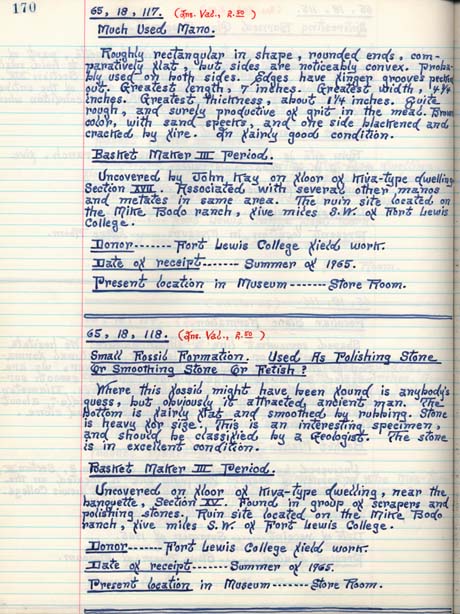 170
65, 18, 117. (Ins. Val., 2.50)
Much Used Mano.
Roughly rectangular in shape, rounded ends, com-
paratively flat, but sides are noticeably convex. Proba-
bly used on both sides. Edges have finger grooves pecked
out. Greatest length, 7 inches. Greatest width, 4 1/4
inches. Greatest thickness, about 1 1/4 inches. Quite
rough, and surely productive of grit in the meal. Brown
color, with sand specks, and one side blackened and
cracked by fire. In fairly good condition.
Basket Maker III Period.
Uncovered by John Kay on floor of Kiva-type dwelling
Section XVII. Associated with several other manos
and metates in same area. The ruin site located on
the Mike Bodo ranch, five miles S.W. of Fort Lewis
College.
Donor------- Fort Lewis College field work.
Date of receipt------- Summer of 1965.
Present location in Museum------- Store Room.
65, 18, 118. (Ins. Val., 2.50)
Small Fossil Formation. Used As Polishing Stone
Or Smoothing Stone Or Fetish?
Where this fossil might have been found is anybody's
guess, but obviously it attracted ancient man. The
bottom is fairly flat and smoothed by rubbing. Stone
is heavy for size. This is an interesting specimen,
and should be classified by a Geologist. The stone
is in excellent condition.
Basket Maker III Period.
Uncovered on floor of Kiva-type dwelling, near the
banquette, Section XV. Found in group of scrapers and
polishing stones. Ruin site located on the Mike Bodo
ranch, five miles S.W. of Fort Lewis College.
Donor------- Fort Lewis College field work.
Date of receipt------- Summer of 1965.
Present location in Museum------- Store Room.